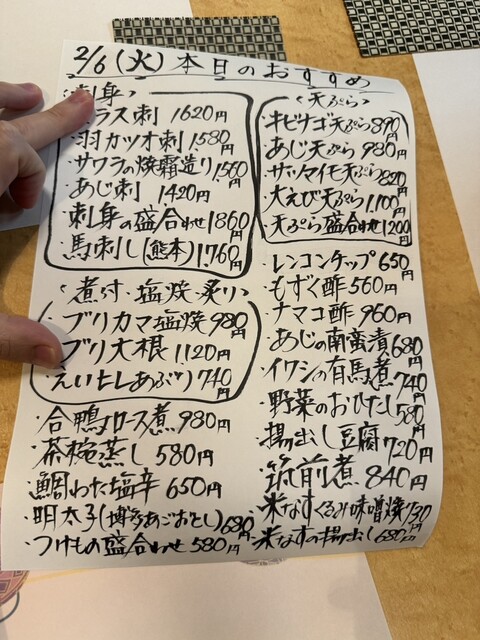 2/6(火)本日のおすすめ
刺身
ラス刺 1620円
羽カツオ刺 1580円
サワラの焼霜造り 1,560円
あじ刺 1,420円
刺身の盛合わせ 1860円
馬刺し(熊本) 1,760円
〈煮付・塩焼・炙り〉
ブリカマ塩焼 980円
ブリ大根 1120円
えいひしあぶり 740円
・合鴨ロース煮 980円
・茶椀蒸し 580円
・鯛わた塩辛 650円
・明太子(博多あごおとし) 680円
・つけもの盛合わせ 580円
〈天ぷら〉
・キビナゴ天ぷら 890円
・あじ天ぷら 980円
・サツマイモ天ぷら 820円
・大えび天ぷら 1,100円
・天ぷら盛合わせ 1200円
・レンコンチップ 650円
・もずく酢 560円
・ナマコ酢 960円
・あじの南蛮漬 680円
・イワシの有馬煮 740円
・野菜のおひたし 580円
・揚出し豆腐 720円
・筑前煮 840円
・米なすくるみ味噌焼 730円
・米なすの揚出し 680円